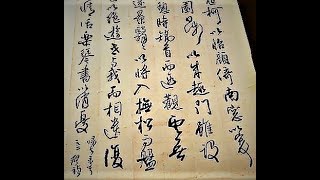 柯以怡顏倚南窗以
園日涉以成趣門雖設
時矯首而遐觀雲無
景翳翳以將入撫松而盤
以絕遊世与我而相違復
情話樂琴書以消憂